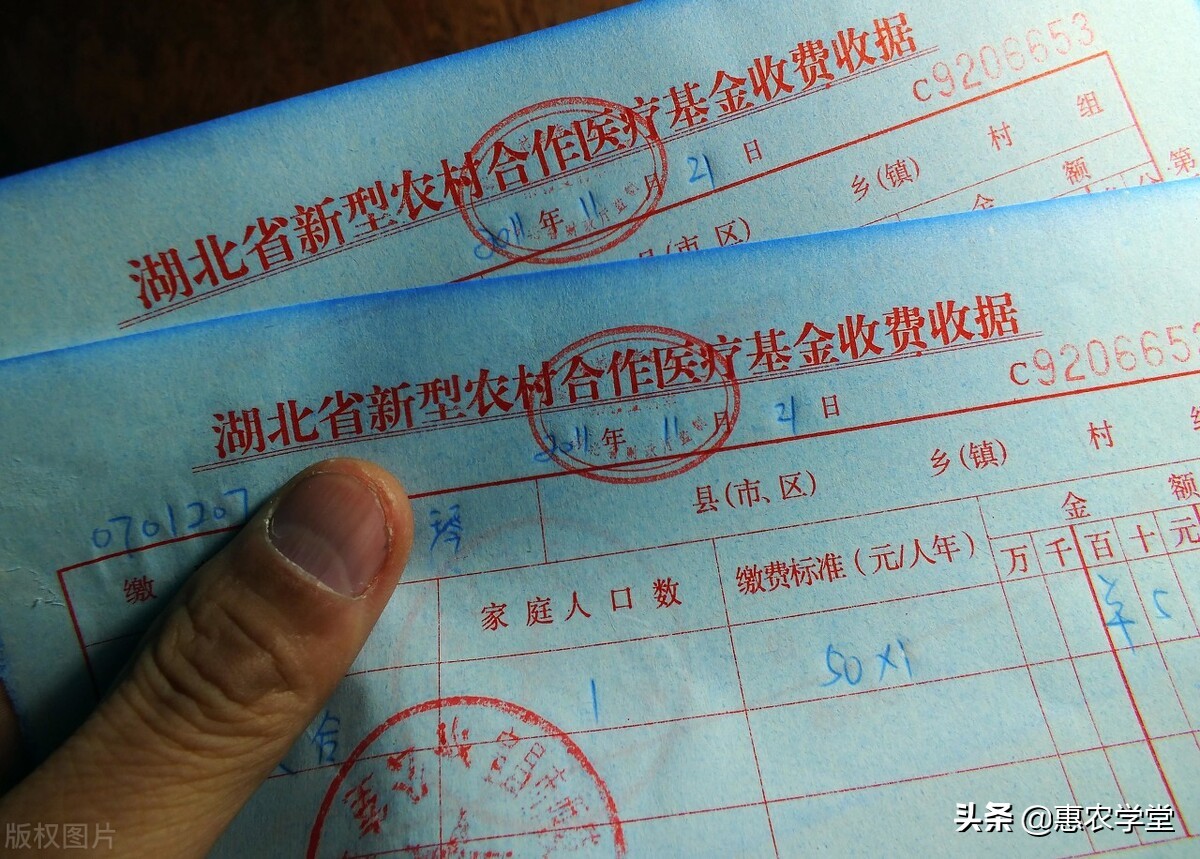 湖北省新型农村合作医疗基金收费收据
c9208653
2011年11月21日
县(市、区)
乡(镇)
村
组
金
额
第
湖北省新型农村合作医疗基金收费收据
c920665
2011年11月21日
0701207
琴
县(市、区)
乡(镇)
村
缴
家庭人口数
缴费标准(元/人年)
金
额
万千百十元
1
50×1
5
合
版权图片
头条 @惠农学堂